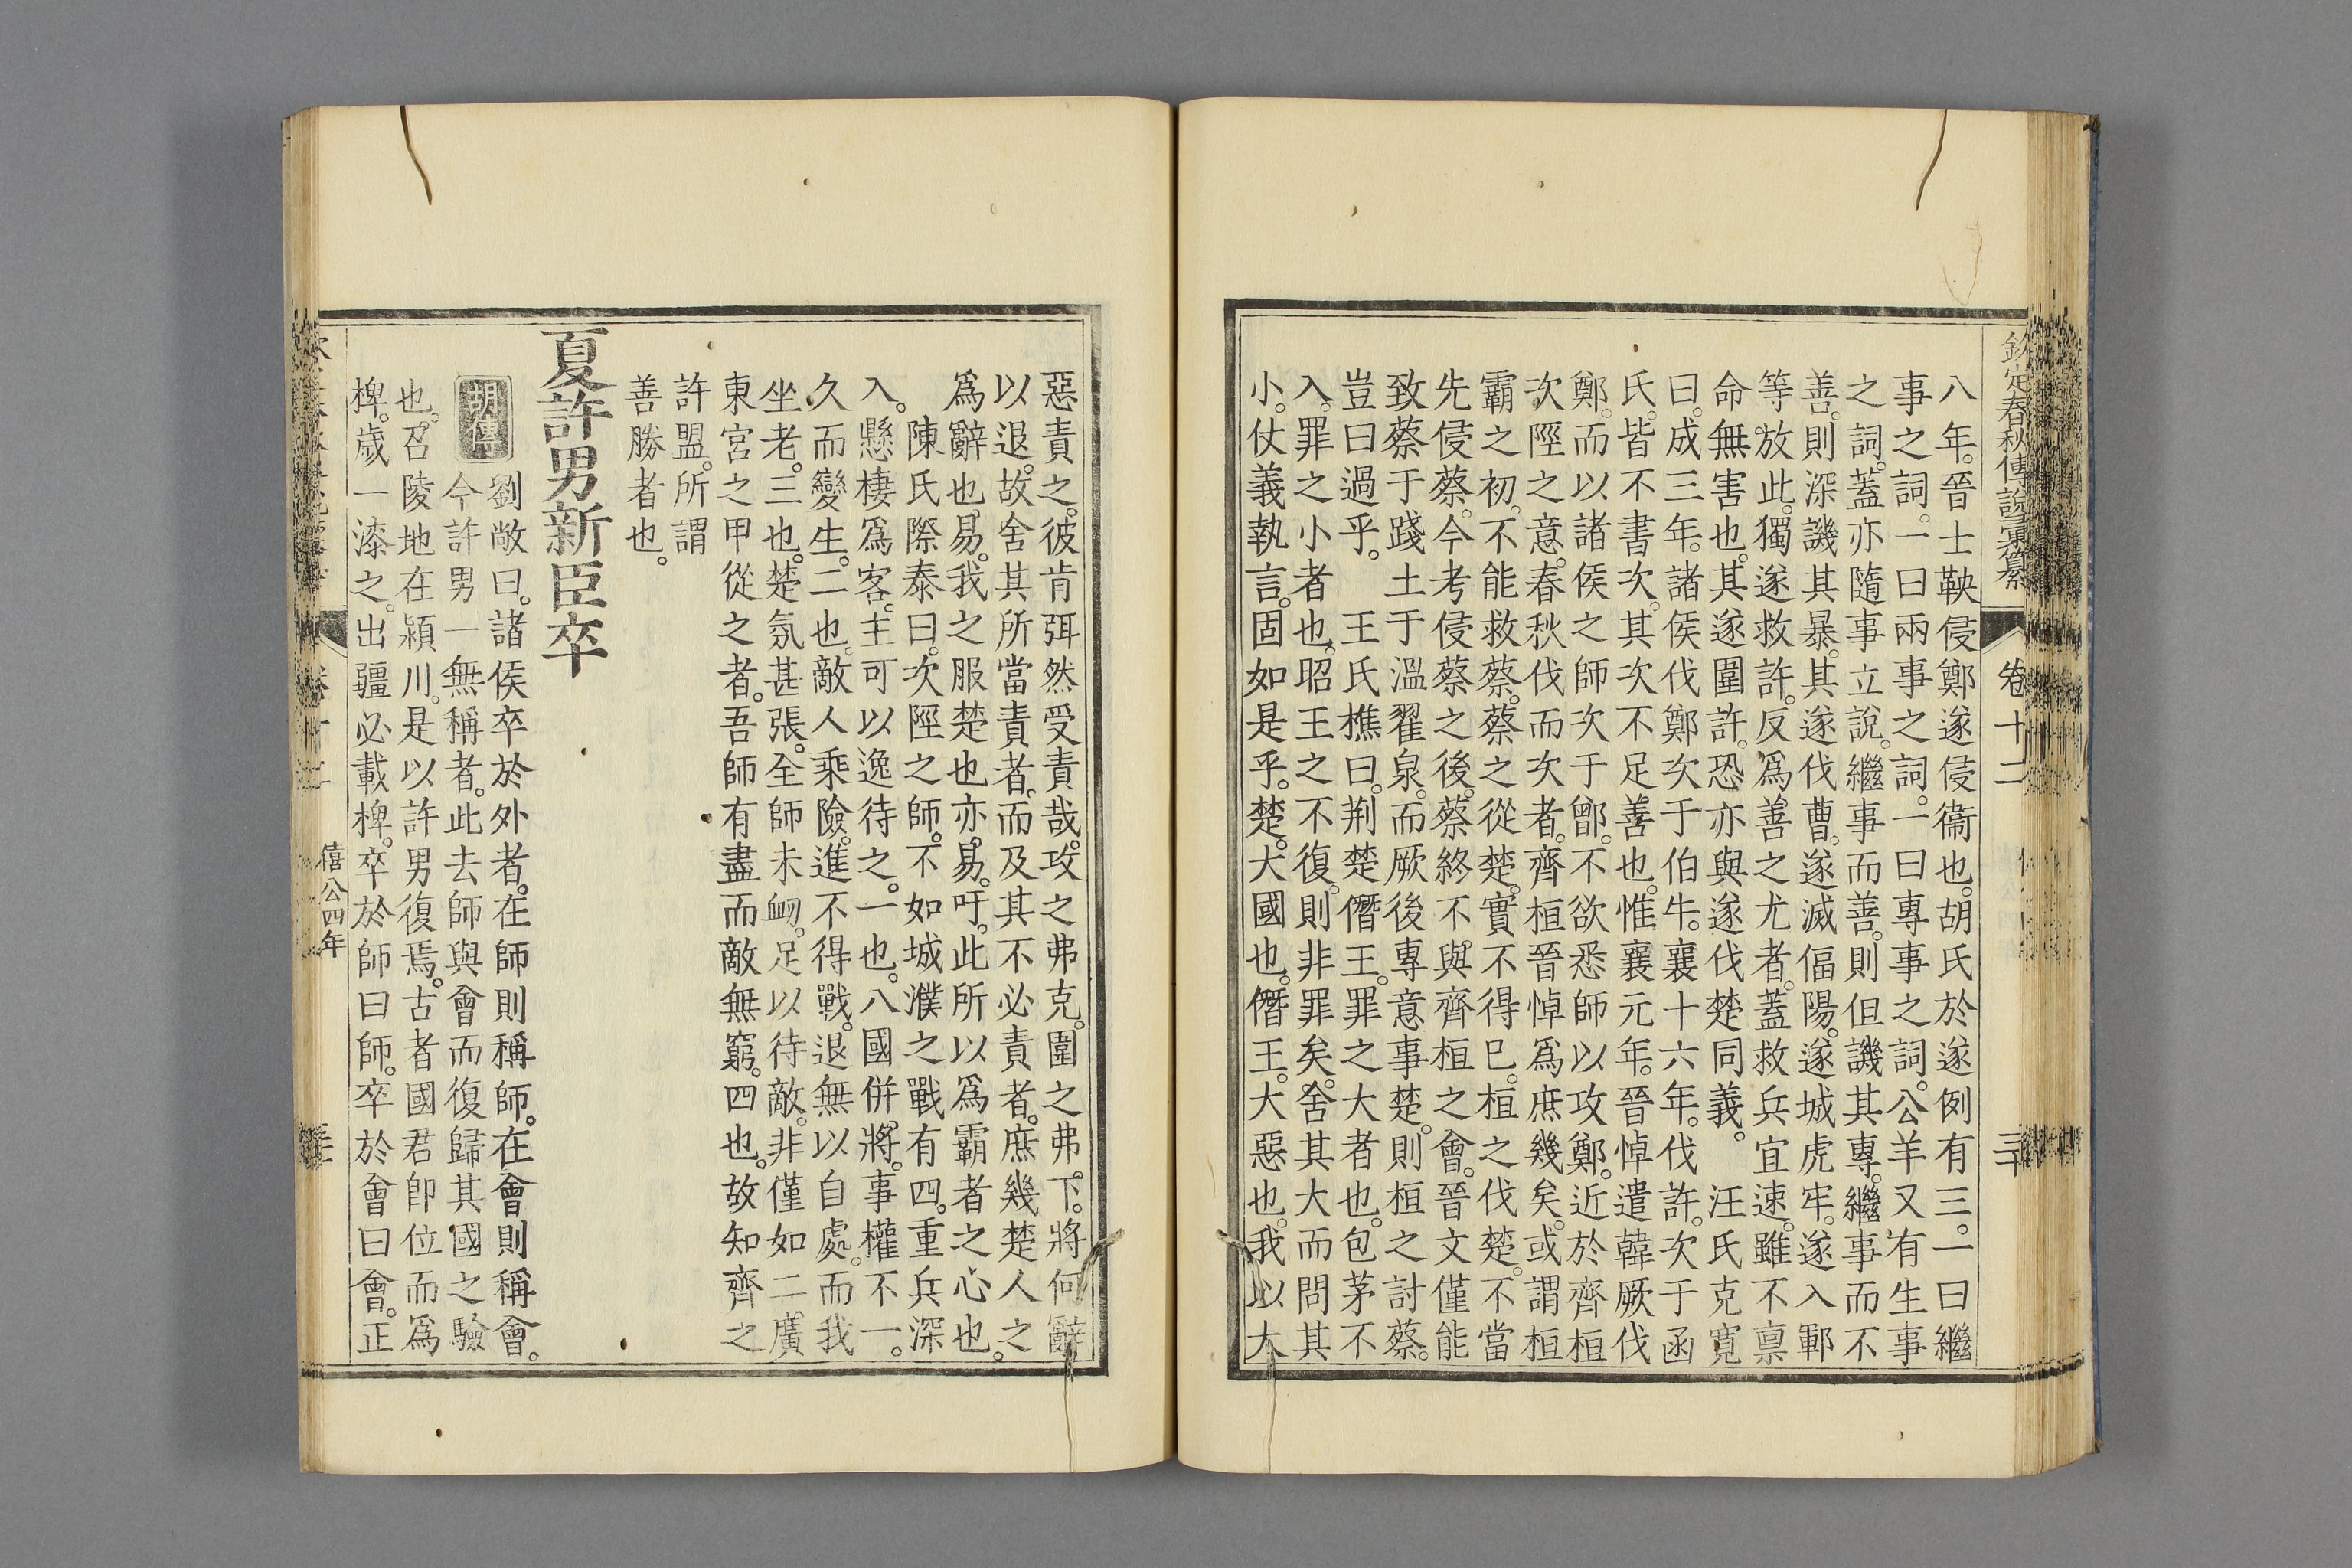 欽定春秋傳說彙纂　卷十二　三十
八年。晉士鞅侵鄭遂侵衞也。胡氏於遂例有三。一曰繼
事之詞。一曰兩事之詞。一曰專事之詞。公羊又有生事
之詞。蓋亦隨事立說。繼事而善。則但譏其專。繼事而不
善。則深譏其暴。其遂伐曹。遂滅偪陽。遂城虎牢。遂入鄆
等放此。獨遂救許。反爲善之尤者。蓋救兵宜速。雖不禀
命無害也。其遂圍許。恐亦與遂伐楚同義。　汪氏克寬
曰。成三年。諸侯伐鄭次于伯牛。襄十六年。伐許。次于函
氏。皆不書次。其次不足善也。惟襄元年。晉悼遣韓厥伐
鄭。而以諸侯之師次于鄫。不欲悉師以攻鄭。近於齊桓
次陘之意。春秋伐而次者。齊桓晉悼爲庶幾矣。或謂桓
霸之初。不能救蔡。蔡之從楚。實不得已。桓之伐楚。不當
先侵蔡。今考侵蔡之後。蔡終不與齊桓之會。晉文僅能
致蔡于踐土于溫翟泉。而厥後專意事楚。則桓之討蔡。
豈曰過乎。　王氏樵曰。荆楚僭王。罪之大者也。包茅不
入。罪之小者也。昭王之不復。則非罪矣。舍其大而問其
小。仗義執言。固如是乎。楚。大國也。僭王。大惡也。我以大
惡責之。彼肯弭然受責哉。攻之弗克。圍之弗下。將何辭
以退。故舍其所當責者。而及其不必責者。庶幾楚人之
爲辭也易。我之服楚也亦易。吁。此所以爲霸者之心也。
陳氏際泰曰。次陘之師。不如城濮之戰有四。重兵深
入。懸棲爲客。主可以逸待之。一也。八國併將。事權不一。
久而變生。二也。敵人乘險。進不得戰。退無以自處。而我
坐老。三也。楚氛甚張。全師未衂。足以待敵。非僅如二廣
東宮之甲從之者。吾師有盡而敵無窮。四也。故知齊之
許盟。所謂
善勝者也。
夏許男新臣卒
胡傳　劉敞曰。諸侯卒於外者。在師則稱師。在會則稱會。
今許男一無稱者。此去師與會而復歸其國之驗
也。召陵地在潁川。是以許男復焉。古者國君卽位而爲
椑。歲一漆之。出疆必載椑。卒於師曰師。卒於會曰會。正
僖公四年